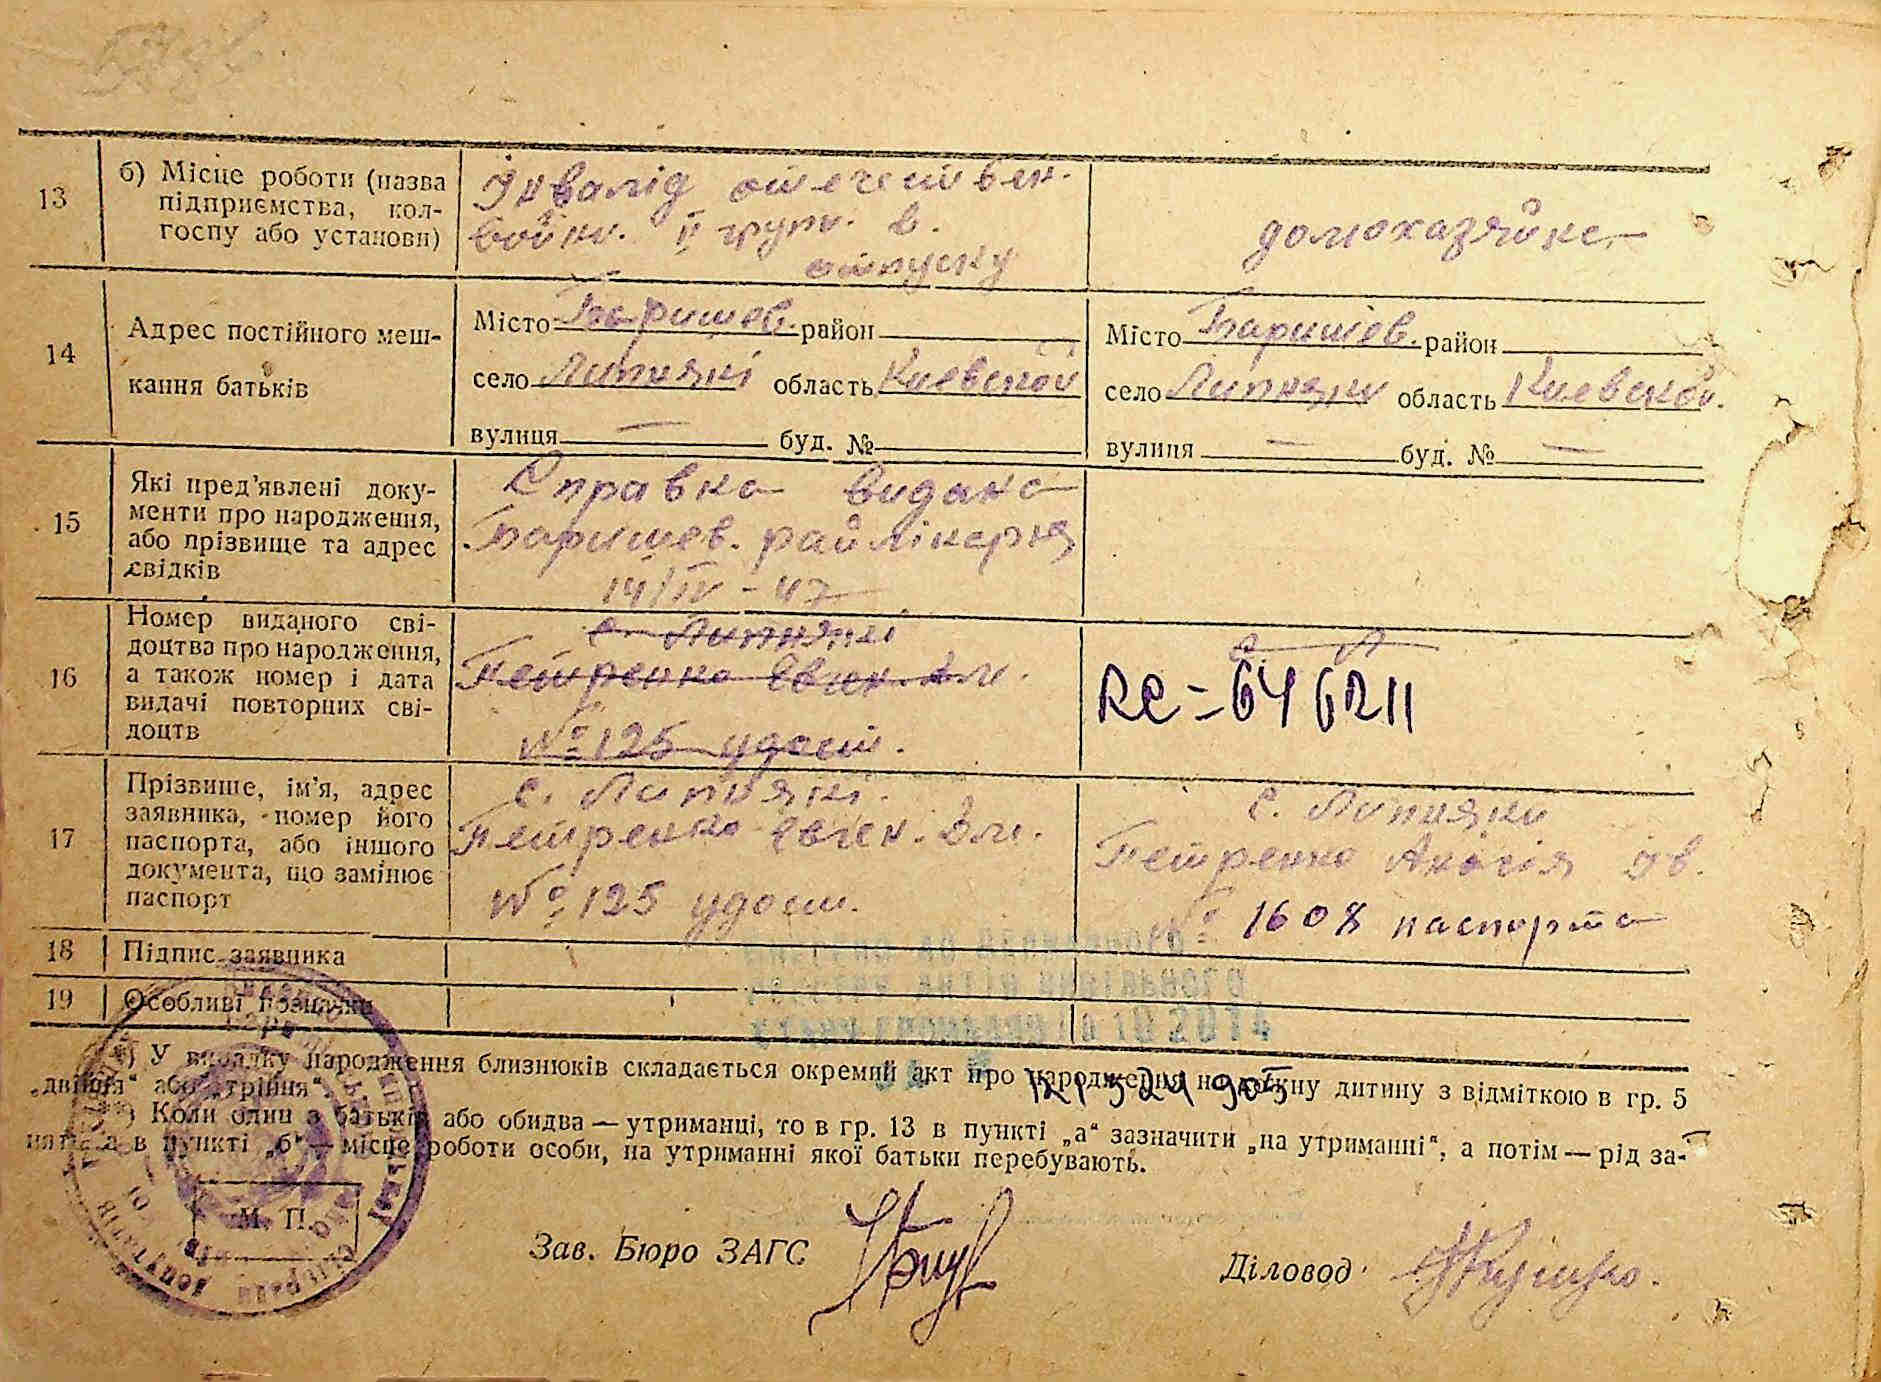 13
б) Місце роботи (назва
підприємства, кол-
госпу або установи)
Інвалід отечествен.
войни. II груп. в.
отпуску
домохазяйка
14
Адрес постійного меш-
кання батьків
Місто Баришев. район
село Липнякі область Киевской
вулиця — буд. №
Місто Баришев. район
село Липняки область Киевской.
вулиця — буд. № —
15
Які пред’явлені доку-
менти про народження,
або прізвище та адрес
свідків
Справка видана
Баришев. райлікарня
14/IV - 47
16
Номер виданого сві-
доцтва про народження,
а також номер і дата
видачі повторних сві-
доцтв
с. Липнякі
Петренко Евген. Вл.
№ 125 удост.
с Л
646211
17
Прізвише, ім’я, адрес
заявника, номер його
паспорта, або іншого
документа, що замінює
паспорт
с. Липнякі.
Петренко Евген. Вл.
№ 125 удост.
с. Липняки
Петренко Ів.
№ 1608 паспорта
18
Підпис заявника
19
Особливі позначки
10 2014
*) У випадку народження близнюків складається окремий акт про народження на кожну дитину з відміткою в гр. 5
„двійня“ або „трійня“.
) Коли один з батьків або обидва — утриманці, то в гр. 13 в пункті „а“ зазначити „на утриманні“, а потім — рід за-
няття, а в пункті „б“ — місце роботи особи, на утриманні якої батьки перебувають.
М. П.
Зав. Бюро ЗАГС
Діловод